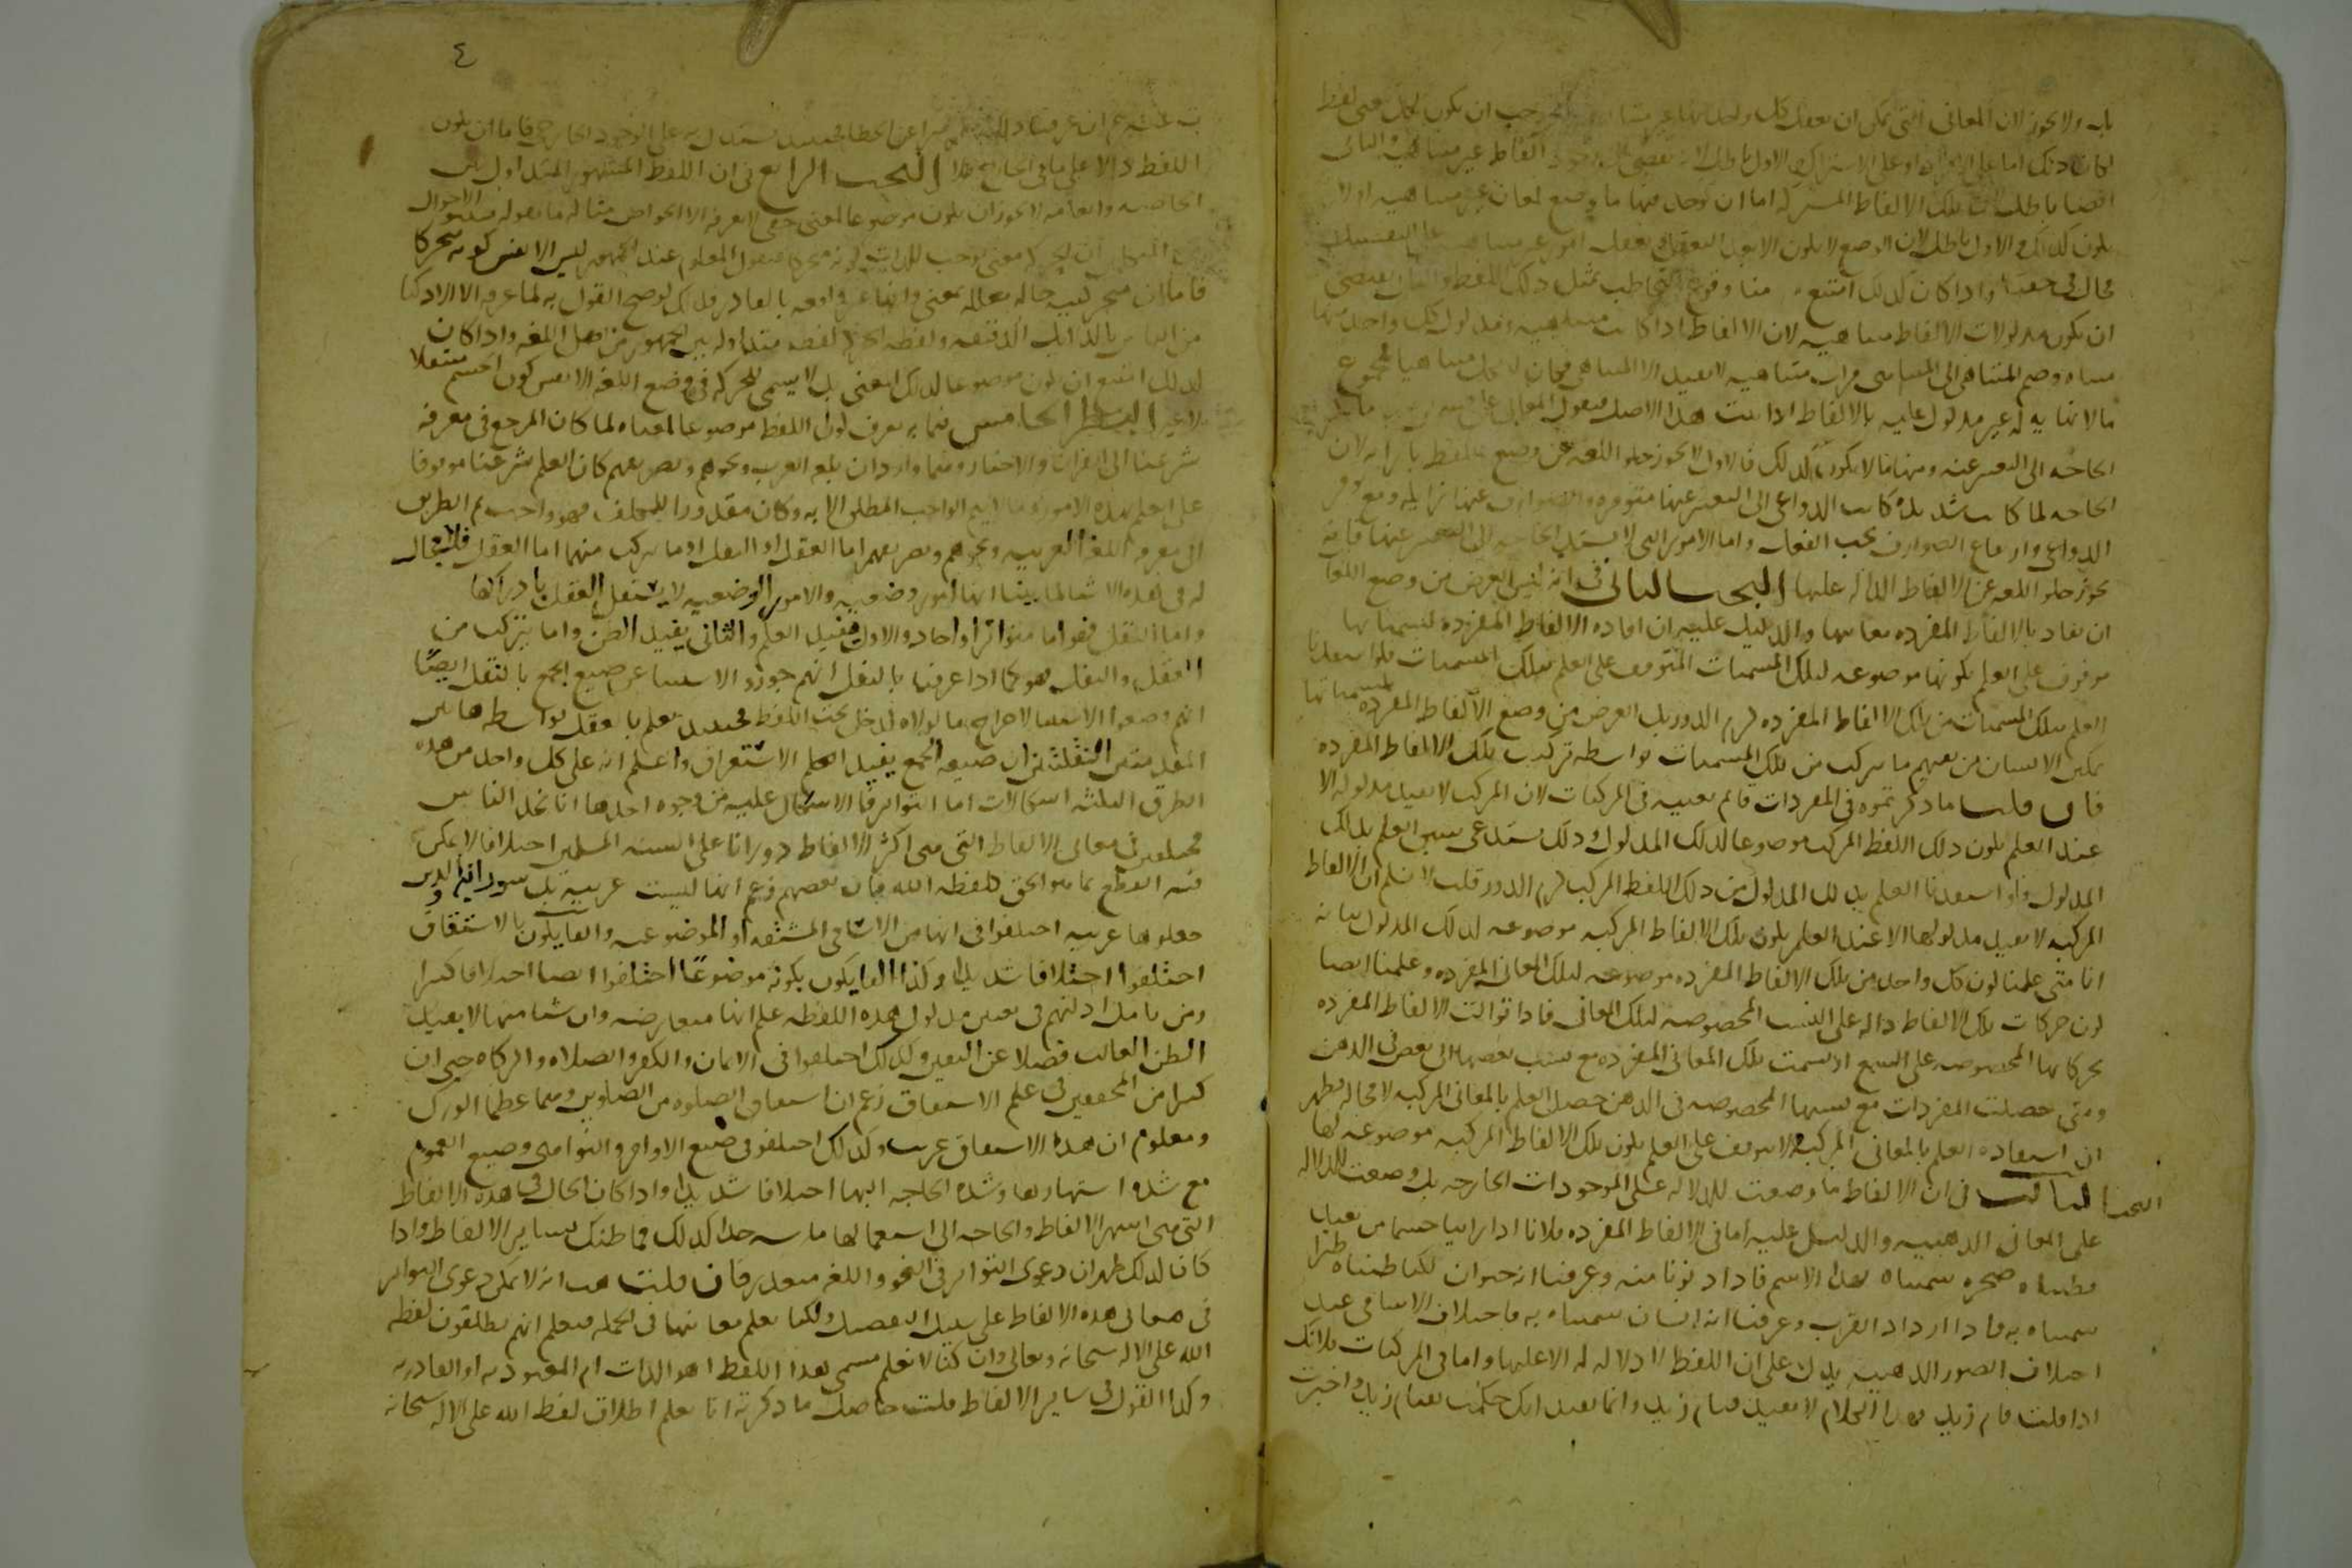 بل ولا يجوز لان المعانى التى يمكن ان يعقل كل واحد منها غير متناهية فلو وجب ان يكون لكل معنى لفظ
لكان ذلك اما على الانفراد او على الاشتراك والاول باطل لانه يفضى الى وجود الفاظ غير متناهية والثانى
ايضا باطل لان تلك الالفاظ المشتركة اما ان يوجد فيها ما وضع لمعان غير متناهية او لا
يكون كذلك والاول باطل لان الوضع لا يكون الا بعد التعقل وتعقل امور غير متناهية على التفصيل
محال فى حقنا واذا كان كذلك امتنع منا وقوع التخاطب بمثل ذلك اللفظ والثانى يقتضى
ان يكون مدلولات الالفاظ متناهية لان الالفاظ اذا كانت متناهية ومدلول كل واحد منها
متناه وضم المتناهى الى المتناهى مرات متناهية لا يفيد الا المتناهى فكان الكل متناهيا فمجموع
ما لا نهاية له غير مدلول عليه بالالفاظ اذا ثبت هذا الاصل فنقول المعانى على قسمين منها ما تكثر
الحاجة الى التعبير عنه ومنها ما لا يكون كذلك فالاول لا يجوز خلو اللغة عن وضع اللفظ بازائه لان
الحاجة لما كانت شديدة كانت الدواعى الى التعبير عنها متوفرة والصوارف عنها زايلة ومع توفر
الدواعى وارتفاع الصوارف يجب الفعل واما الامور التى لا تشتد الحاجة الى التعبير عنها فانه
يجوز خلو اللغة عن الالفاظ الدالة عليها البحث الثانى فى انه ليس الغرض من وضع اللغات
ان تفاد بالالفاظ المفردة معانيها والدليل عليه ان افادة الالفاظ المفردة لمسمياتها
موقوف على العلم بكونها موضوعة لتلك المسميات المتوقف على العلم بتلك المسميات فلو استفدنا
العلم بتلك المسميات من تلك الالفاظ المفردة لزم الدور بل الغرض من وضع الالفاظ المفردة لمسمياتها
تمكين الانسان من تفهيم ما يتركب من تلك المسميات بواسطة تركيب تلك الالفاظ المفردة
فان قلت ما ذكرتموه فى المفردات قائم بعينه فى المركبات لان المركب لا يفيد مدلوله الا
عند العلم بكون ذلك اللفظ المركب موضوعا لذلك المدلول وذلك يستدعى سبق العلم بذلك
المدلول فلو استفدنا العلم بذلك المدلول من ذلك اللفظ المركب لزم الدور قلت لا نسلم ان الالفاظ
المركبة لا يفيد مدلولها الا عند العلم بكون تلك الالفاظ المركبة موضوعة لذلك المدلول بيانه
انا متى علمنا كون كل واحد من تلك الالفاظ المفردة موضوعة لتلك المعانى المفردة وعلمنا ايضا
كون حركات تلك الالفاظ دالة على النسب المخصوصة لتلك المعانى فاذا توالت الالفاظ المفردة
بحركاتها المخصوصة على السمع ارتسمت تلك المعانى المفردة مع نسب بعضها الى بعض فى الذهن
ومتى حصلت المفردات مع نسبها المخصوصة فى الذهن حصل العلم بالمعانى المركبة لا محالة فظهر
ان استفادة العلم بالمعانى المركبة لا يتوقف على العلم بكون تلك الالفاظ المركبة موضوعة لها
البحث الثالث فى ان الالفاظ ما وضعت للدلالة على الموجودات الخارجة بل وضعت للدلالة
على المعانى الذهنية والدليل عليه اما فى الالفاظ المفردة فلانا اذا راينا جسما من بعيد
وظنناه صخرة سميناه بهذا الاسم فاذا دنونا منه وعرفنا انه حيوان لكنا ظنناه طيرا
سميناه به فاذا ازداد القرب وعرفنا انه انسان سميناه به فاختلاف الاسامى عند
اختلاف الصور الذهنية يدل على ان اللفظ لا دلالة له الا عليها واما فى المركبات فلانك
اذا قلت قام زيد فهذا الكلام لا يفيد قيام زيد وانما يفيد انك حكمت بقيام زيد واخبرت
٤
ثم ان عرفنا ان ذلك الحكم مبرا عن الخطا فحينئذ نستدل به على الوجود الخارجى فاما ان يكون
اللفظ دالا على ما فى الخارج فلا البحث الرابع فى ان اللفظ المشهور المتداول بين
الخاصة والعامة لا يجوز ان يكون موضوعا لمعنى خفى لا يعرفه الا الخواص مثاله ما يقوله مثبتو الاحوال
من المتكلمين ان الحركة معنى يوجب للذات كونه متحركا فنقول المعلوم عند الجمهور ليس الا نفس كونه متحركا
فاما ان متحركيته حالة معللة بمعنى وانها غير واقعة بالقادر فذلك لو صح القول به لما عرفه الا الاذكيا
من الناس بالدلايل الدقيقة ولفظة الحركة لفظة متداولة بين الجمهور من اهل اللغة واذا كان
كذلك امتنع ان يكون موضوعا لذلك المعنى بل لا يسمى للحركة فى وضع اللغة الا نفس كون الجسم منتقلا
لا غير النظر الخامس فيما به يعرف كون اللفظ موضوعا لمعناه لما كان المرجع فى معرفة
شرعنا الى القران والاخبار وهما واردان بلغة العرب ونحوهم وتصريفهم كان العلم بشرعنا موقوفا
على العلم بهذه الامور وما لا يتم الواجب المطلق الا به وكان مقدورا للمكلف فهو واجب ثم الطريق
الى معرفة اللغة العربية ونحوهم وتصريفهم اما العقل او النقل او ما يتركب منهما اما العقل فلا مجال
له فى هذه الاشيا لما بينا انها امور وضعية والامور الوضعية لا يستقل العقل بادراكها
واما النقل فهو اما متواتر او احاد والاول يفيد العلم والثانى يفيد الظن واما ما يتركب من
العقل والنقل فهو كما اذا عرفنا بالنقل انهم جوزوا الاستثنا عن صيغ الجمع بالنقل ايضًا
انهم وضعوا الاستثنا لاخراج ما لولاه لدخل تحت اللفظ فحينئذ نعلم بالعقل بواسطة هاتين
المقدمتين النقليتين ان صيغة الجمع يفيد الاستغراق واعلم انه على كل واحد من هذه
الطرق الثلثة اشكالات اما التواتر فالاشكال عليه من وجوه احدها انا نجد الناس
مختلفين فى معانى الالفاظ التى هى اكثر الالفاظ دورانا على السنة المسلمين اختلافا لا يمكن
فيه القطع بما هو الحق كلفظة الله فان بعضهم زعم انها ليست عربية بل سوريانية والذين
جعلوها عربية اختلفوا فى انها من الاسامى المشتقة او الموضوعة والقايلون بالاشتقاق
اختلفوا اختلافا شديدا وكذا القايلون بكونه موضوعًا اختلفوا ايضا اختلافا كثيرا
ومن تامل ادلتهم فى تعيين مدلول هذه اللفظة علم انها متعارضة وان شيا منها لا يفيد
الظن الغالب فضلا عن اليقين وكذلك اختلفوا فى الايمان والكفر والصلاة والزكاة حتى ان
كثيرا من المحققين فى علم الاشتقاق زعم ان اشتقاق الصلوة من الصلوين وهما عظما الورك
ومعلوم ان هذا الاشتقاق غريب وكذلك اختلفوا فى صيغ الاوامر والنواهى وصيغ العموم
مع شدة اشتهارها وشدة الحاجة اليها اختلافا شديدا واذا كان الحال فى هذه الالفاظ
التى هى اشهر الالفاظ والحاجة الى استعمالها ماسة جدا كذلك فما ظنك بساير الالفاظ واذا
كان كذلك ظهر ان دعوى التواتر فى النحو واللغة متعذر فان قلت هب انه لا يمكن دعوى التواتر
فى معانى هذه الالفاظ على سبيل التفصيل ولكنا نعلم معانيها فى الجملة فنعلم انهم يطلقون لفظة
الله على الاله سبحانه وتعالى وان كنا لا نعلم مسمى هذا اللفظ اهو الذات ام المعبودية او القادرية
وكذا القول فى ساير الالفاظ قلت حاصل ما ذكرته انا نعلم اطلاق لفظ الله على الاله سبحانه